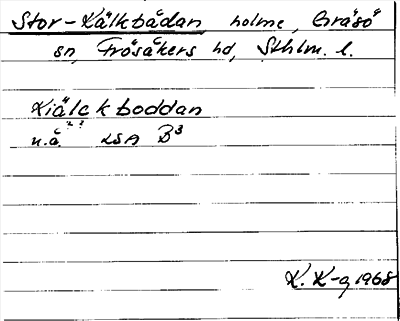 Stor-Kälkbådan holme, Gräsö
sn, Frösåkers hd, Sthlm. l.
Kiälckboddan
u.å. LSA B³
K. K-g 1968